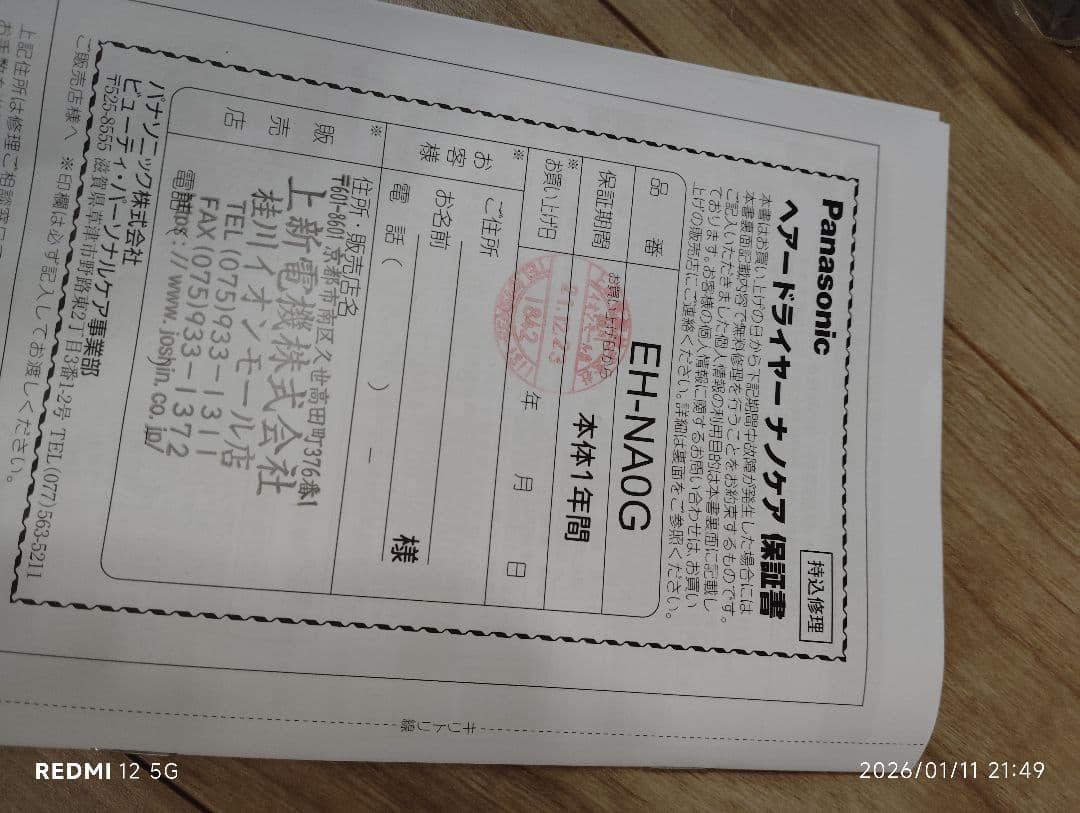 Panasonic
持込修理
ヘアードライヤー ナノケア 保証書
本書はお買い上げの日から下記期間中故障が発生した場合には
本書裏面記載内容で無料修理を行うことをお約束するものです。
ご記入いただきました個人情報の利用目的は本書裏面に記載し
ております。お客様の個人情報に関するお問い合わせは、お買い
上げの販売店にご連絡ください。詳細は裏面をご参照ください。
品番 EH-NA0G
保証期間 お買い上げ日から 本体1年間
※お買い上げ日 年 月 日
21.12.23
1842
※お客様
ご住所
お名前 様
電話( ) -
※販売店
住所・販売店名
〒601-8601 京都市南区久世高田町376番1
上新電機株式会社
桂川イオンモール店
TEL(075)933-1311
FAX(075)933-1372
電話
://www.joshin.co.jp/
パナソニック株式会社
ビューティ・パーソナルケア事業部
〒525-8555 滋賀県草津市野路東2丁目3番1-2号 TEL(077)563-5211
ご販売店様へ ※印欄は必ず記入してお渡しください。
上記住所は修理ご相談窓口
キリトリ線
REDMI 12 5G
2026/01/11 21:49